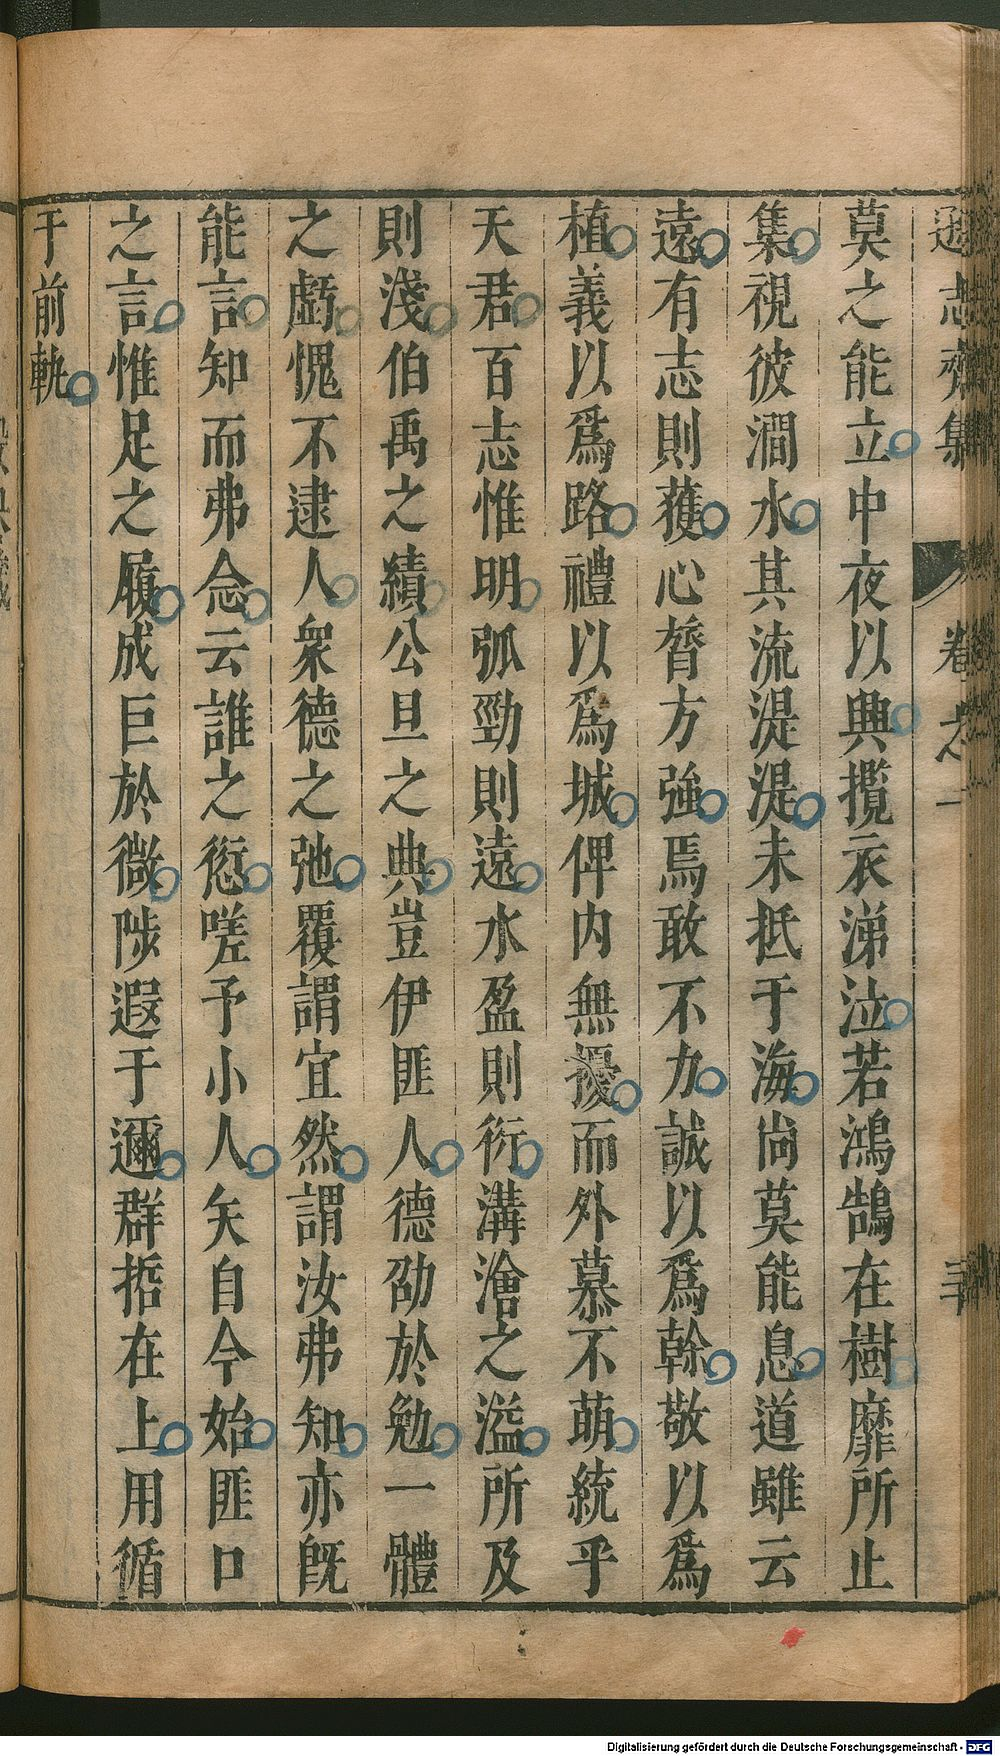 遜志齋集 卷之一 三十
莫之能立中夜以興攬衣涕泣若鴻鵠在樹靡所止
集視彼澗水其流湜湜未抵于海尚莫能息道雖云
遠有志則獲心膂方強焉敢不力誠以爲幹敬以爲
植義以爲路禮以爲城俾内無擾而外慕不萌統乎
天君百志惟明弧勁則遠水盈則衍溝澮之溢所及
則淺伯禹之績公旦之典豈伊匪人德劭於勉一體
之虧愧不逮人衆德之弛覆謂宜然謂汝弗知亦既
能言知而弗念云誰之愆嗟予小人矢自今始匪口
之言惟足之履成巨於微陟遐于邇群哲在上用循
于前軌
Digitalisierung gefördert durch die Deutsche Forschungsgemeinschaft - DFG